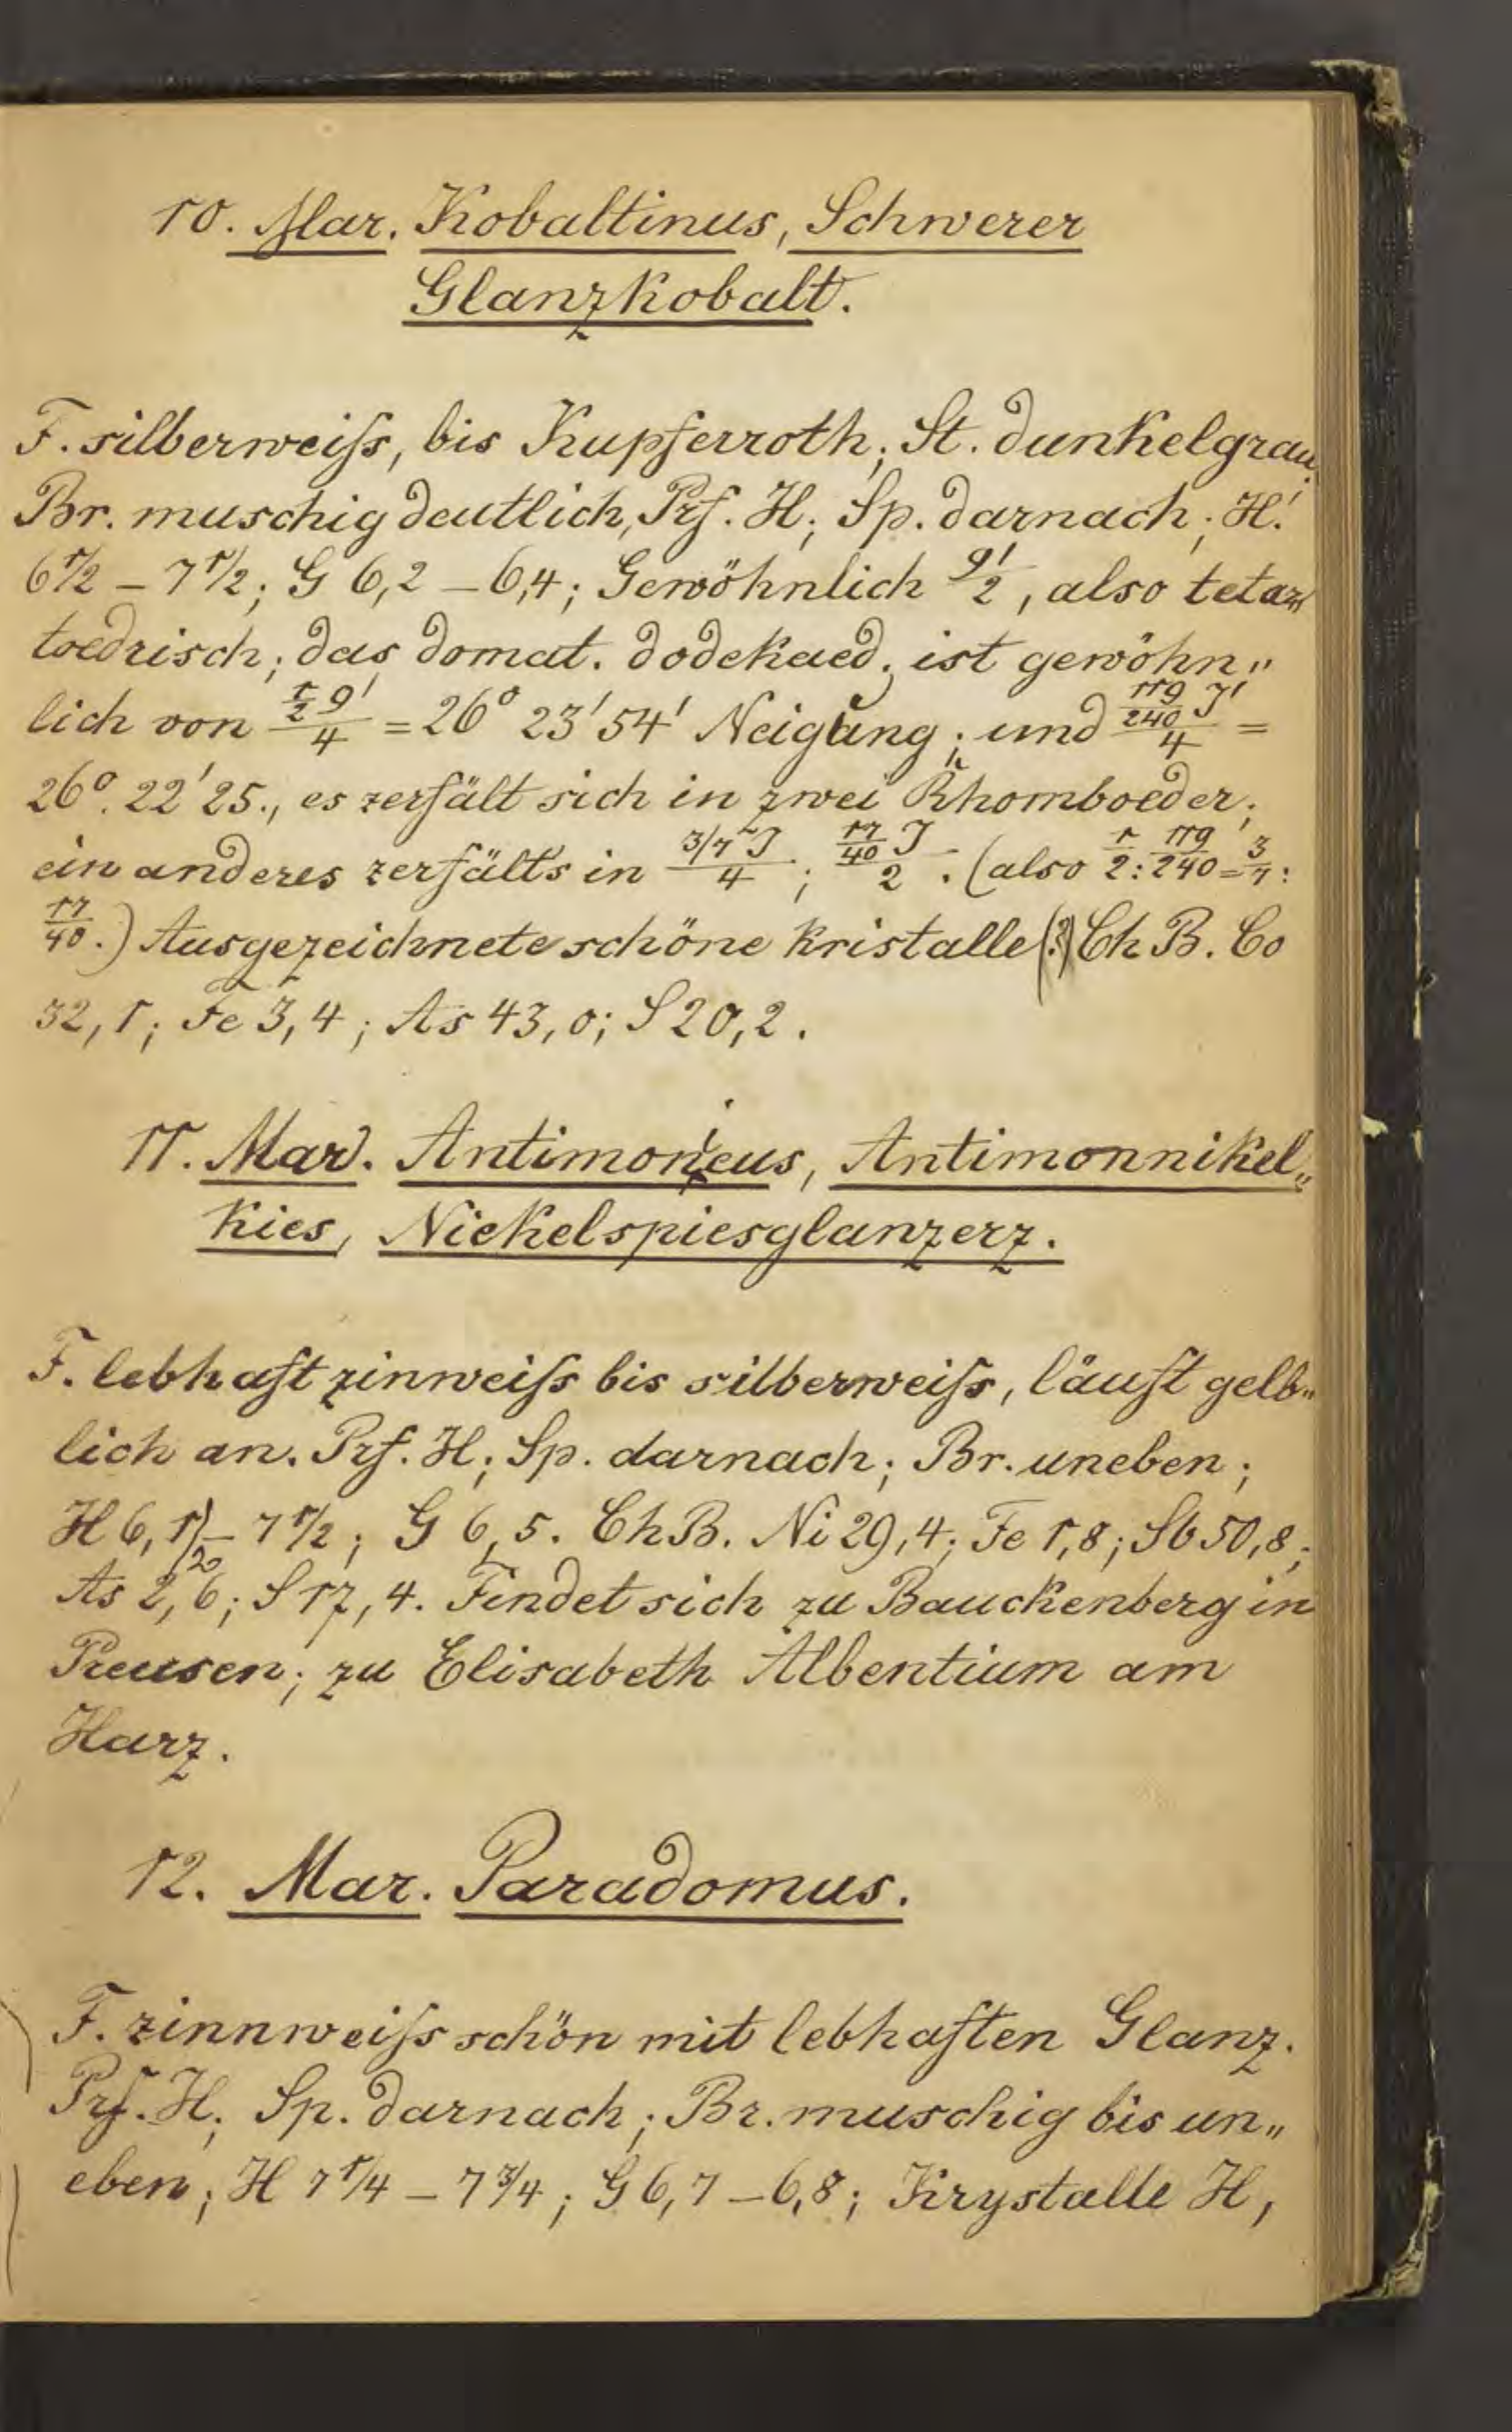 10. Mar. Kobaltinus, Schwerer
Glanzkobalt.
F. silberweiſs, bis Kupferroth; St. dunkelgrau.
Br. muschig deutlich, Prf. H; Sp. darnach; H.
6 1/2 – 7 1/2; G 6,2 – 6,4; Gewöhnlich , also tetar
toedrisch; das domat. dodekaed. ist gewöhn„
lich von = 26° 23' 54' Neigung; und =
26°. 22' 25., es zerfält sich in zwei Rhomboeder;
ein anderes zerfälts in 3/7 J/4; 17/40 J/2. (also 1/2 : 119/240 = 3/7 :
17/40.) Ausgezeichnete schöne Kristalle (?) Ch B. Co
32,1; Fe 3,4; As 43,0; S 20,2.
11. Mar. Antimoneus, Antimonnikel„
Kies, Nickelspiesglanzerz.
F. lebhaft zinweiſs bis silberweiſs, läuft gelb„
lich an. Prf. H; Sp. darnach; Br. uneben;
H 6, 1/2 – 7 1/2; G 6,5. Ch B. Ni 29,4; Fe 1,8; Sb 50,8;
As 2,6; S 17,4. Findet sich zu Bauckenberg in
Preusen; zu Elisabeth Albentium am
Harz.
12. Mar. Paradomus.
F. zinnweiſs schön mit lebhaften Glanz.
Prf. H; Sp. darnach; Br. muschig bis un„
eben; H 7 1/4 – 7 3/4; G 6,7 – 6,8; Krystalle H,